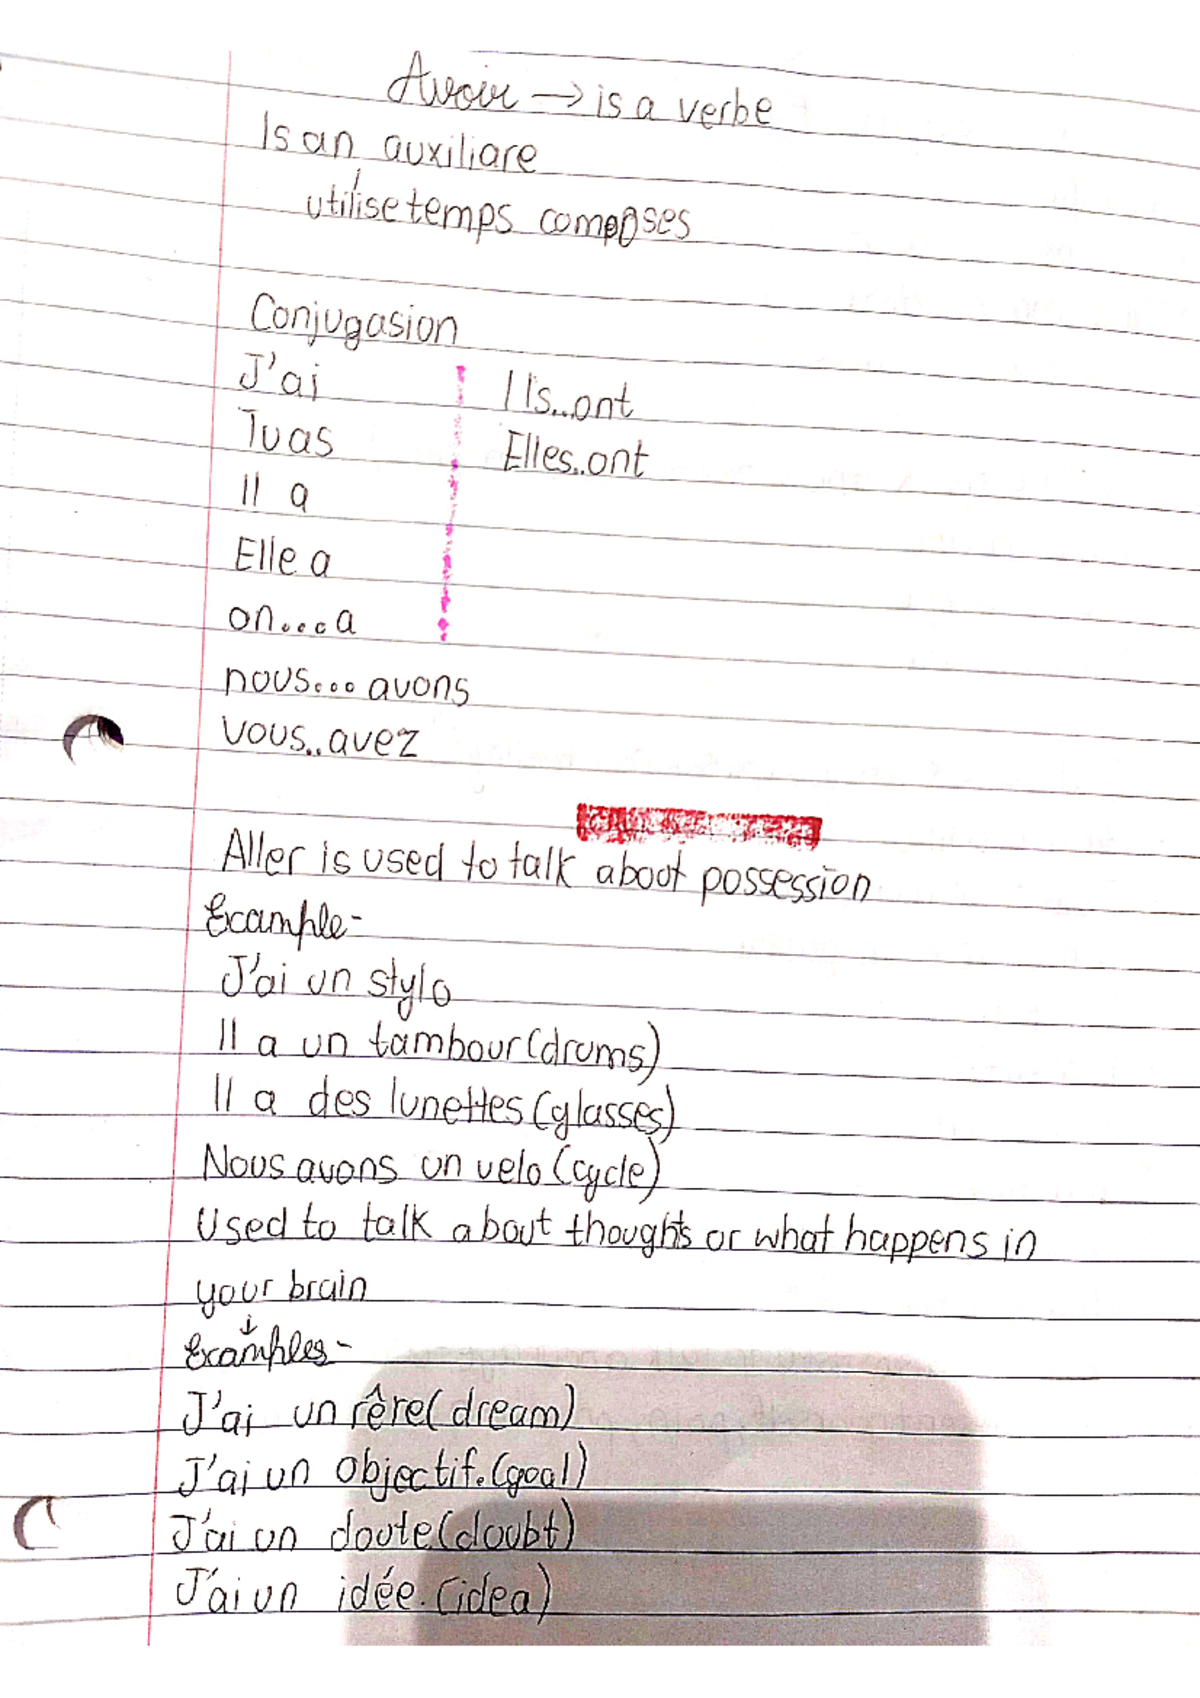 Avoir → is a verbe
Is an auxiliare
utilise temps composes
Conjugasion
J'ai
Tu as
Il a
Elle a
on....a
nous.... avons
vous.. avez
Ils...ont
Elles..ont
Aller is used to talk about possession
Example-
J'ai un stylo
Il a un tambour (drums)
Il a des lunettes (glasses)
Nous avons un velo (cycle)
Used to talk about thoughts or what happens in
your brain
↓
Examples-
J'ai un rêre (dream)
J'ai un objectif. (goal)
J'ai un doute (doubt)
J'ai un idée. (idea)